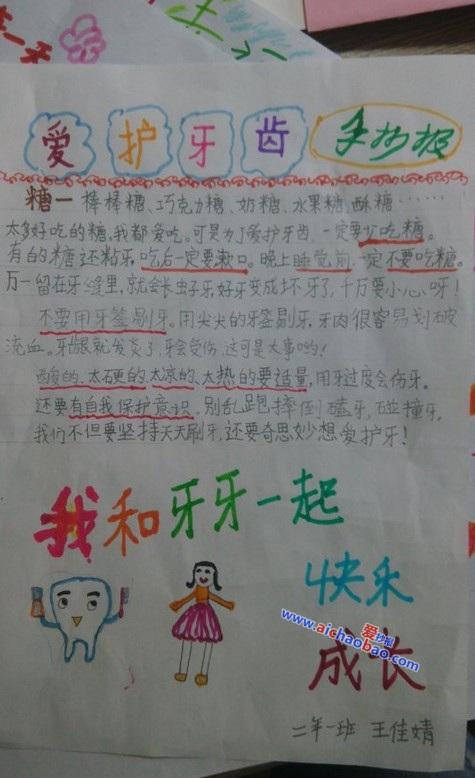 爱护牙齿 手抄报
糖一棒棒糖、巧克力糖、奶糖、水果糖、酥糖……
太多好吃的糖,我都爱吃。可是为了爱护牙齿,一定要少吃糖。
有的糖还粘牙,吃后一定要漱口。晚上睡觉前,一定不要吃糖。
万一留在牙缝里,就会长虫子牙,好牙变成坏牙了,千万要小心呀!
不要用牙签剔牙。用尖尖的牙签剔牙,牙肉很容易划破
流血。牙龈就发炎了,牙会受伤,这可是大事哟!
酸的、太硬的、太凉的、太热的要适量,用牙过度会伤牙。
还要有自我保护意识。别乱跑摔倒磕牙,碰撞牙。
我们不但要坚持天天刷牙,还要奇思妙想爱护牙!
我和牙牙一起
快乐
爱抄报
www.aichaobao.com
成长
二年一班 王佳婧